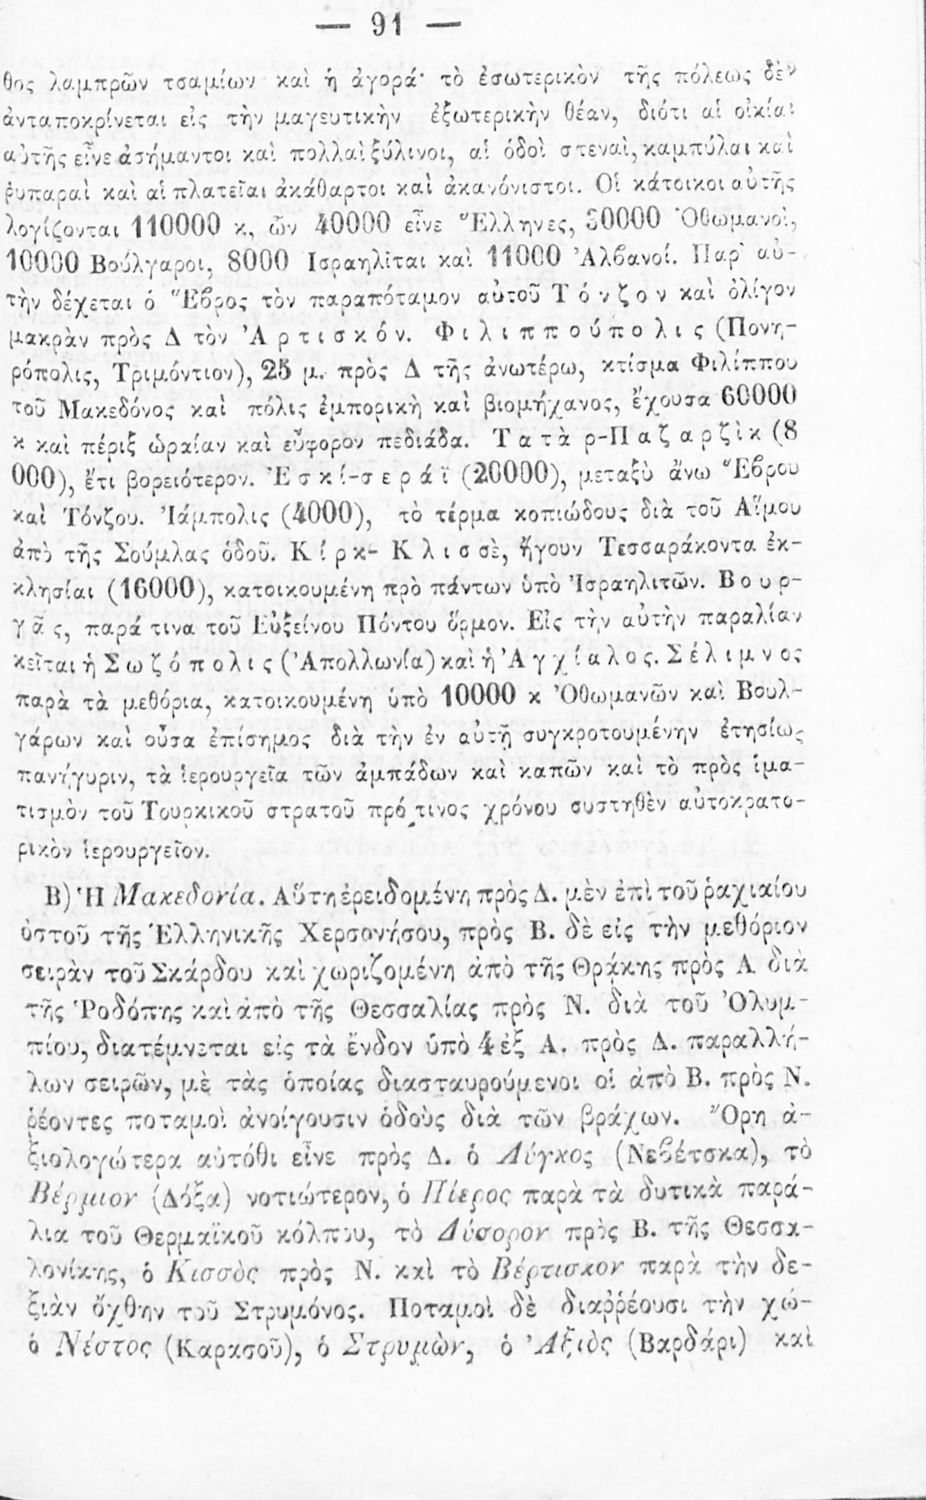 — 91 —
θος λαμπρῶν τσαμίων καὶ ἡ ἀγορά· τὸ ἐσωτερικὸν τῆς πόλεως δὲν
ἀνταποκρίνεται εἰς τὴν μαγευτικὴν ἐξωτερικὴν θέαν, διότι αἱ οἰκίαι
αὐτῆς εἶνε ἀσήμαντοι καὶ πολλαὶ ξύλινοι, αἱ ὁδοὶ στεναί, καμπύλαι καὶ
ῥυπαραὶ καὶ αἱ πλατεῖαι ἀκάθαρτοι καὶ ἀκανόνιστοι. Οἱ κάτοικοι αὐτῆς
λογίζονται 110000 κ, ὧν 40000 εἶνε Ἕλληνες, 30000 Ὀθωμανοί,
10000 Βούλγαροι, 8000 Ἰσραηλῖται καὶ 11000 Ἀλβανοί. Παρ' αὐ-
τὴν δέχεται ὁ Ἕβρος τὸν παραπόταμον αὐτοῦ Τόνζον καὶ ὀλίγον
μακρὰν πρὸς Δ τὸν Ἀρτισκόν. Φιλιππούπολις (Πονη-
ρόπολις, Τριμόντιον), 25 μ. πρὸς Δ τῆς ἀνωτέρω, κτίσμα Φιλίππου
τοῦ Μακεδόνος καὶ πόλις ἐμπορικὴ καὶ βιομήχανος, ἔχουσα 60000
κ καὶ πέριξ ὡραίαν καὶ εὔφορον πεδιάδα. Τατὰρ-Παζαρζὶκ (8
000), ἔτι βορειότερον. Ἐσκί-σεράϊ (20000), μεταξὺ ἄνω Ἕβρου
καὶ Τόνζου. Ἰάμπολις (4000), τὸ τέρμα κοπιώδους διὰ τοῦ Αἵμου
ἀπὸ τῆς Σούμλας ὁδοῦ. Κίρκ-Κλισσὲ, ἤγουν Τεσσαράκοντα ἐκ-
κλησίαι (16000), κατοικουμένη πρὸ πάντων ὑπὸ Ἰσραηλιτῶν. Βουρ-
γᾶς, παρά τινα τοῦ Εὐξείνου Πόντου ὅρμον. Εἰς τὴν αὐτὴν παραλίαν
κεῖται ἡ Σωζόπολις (Ἀπολλωνία) καὶ ἡ Ἀγχίαλος. Σέλιμνος
παρὰ τὰ μεθόρια, κατοικουμένη ὑπὸ 10000 κ Ὀθωμανῶν καὶ Βουλ-
γάρων καὶ οὖσα ἐπίσημος διὰ τὴν ἐν αὐτῇ συγκροτουμένην ἐτησίως
πανήγυριν, τὰ ἱερουργεῖα τῶν ἀμπάδων καὶ καπῶν καὶ τὸ πρὸς ἱμα-
τισμὸν τοῦ Τουρκικοῦ στρατοῦ πρό τινος χρόνου συστηθὲν αὐτοκρατο-
ρικὸν ἱερουργεῖον.
Β) Ἡ Μακεδονία. Αὕτη ἐρειδομένη πρὸς Δ. μὲν ἐπὶ τοῦ ῥαχιαίου
ὀστοῦ τῆς Ἑλληνικῆς Χερσονήσου, πρὸς Β. δὲ εἰς τὴν μεθόριον
σειρὰν τοῦ Σκάρδου καὶ χωριζομένη ἀπὸ τῆς Θράκης πρὸς Α διὰ
τῆς Ῥοδόπης καὶ ἀπὸ τῆς Θεσσαλίας πρὸς Ν. διὰ τοῦ Ὀλυμ-
πίου, διατέμνεται εἰς τὰ ἔνδον ὑπὸ 4 ἐξ Α. πρὸς Δ. παραλλή-
λων σειρῶν, μὲ τὰς ὁποίας διασταυρούμενοι οἱ ἀπὸ Β. πρὸς Ν.
ῥέοντες ποταμοὶ ἀνοίγουσιν ὁδοὺς διὰ τῶν βράχων. Ὄρη ἀ-
ξιολογώτερα αὐτόθι εἶνε πρὸς Δ. ὁ Λύγκος (Νεβέτσκα), τὸ
Βέρμιον (Δόξα) νοτιώτερον, ὁ Πίερος παρὰ τὰ δυτικὰ παρά-
λια τοῦ Θερμαϊκοῦ κόλπου, τὸ Δύσορον πρὸς Β. τῆς Θεσσα-
λονίκης, ὁ Κισσὸς πρὸς Ν. καὶ τὸ Βέρτισκον παρὰ τὴν δε-
ξιὰν ὄχθην τοῦ Στρυμόνος. Ποταμοὶ δὲ διαῤῥέουσι τὴν χώ-
ὁ Νέστος (Καρασοῦ), ὁ Στρυμὼν, ὁ Ἀξιὸς (Βαρδάρι) καὶ